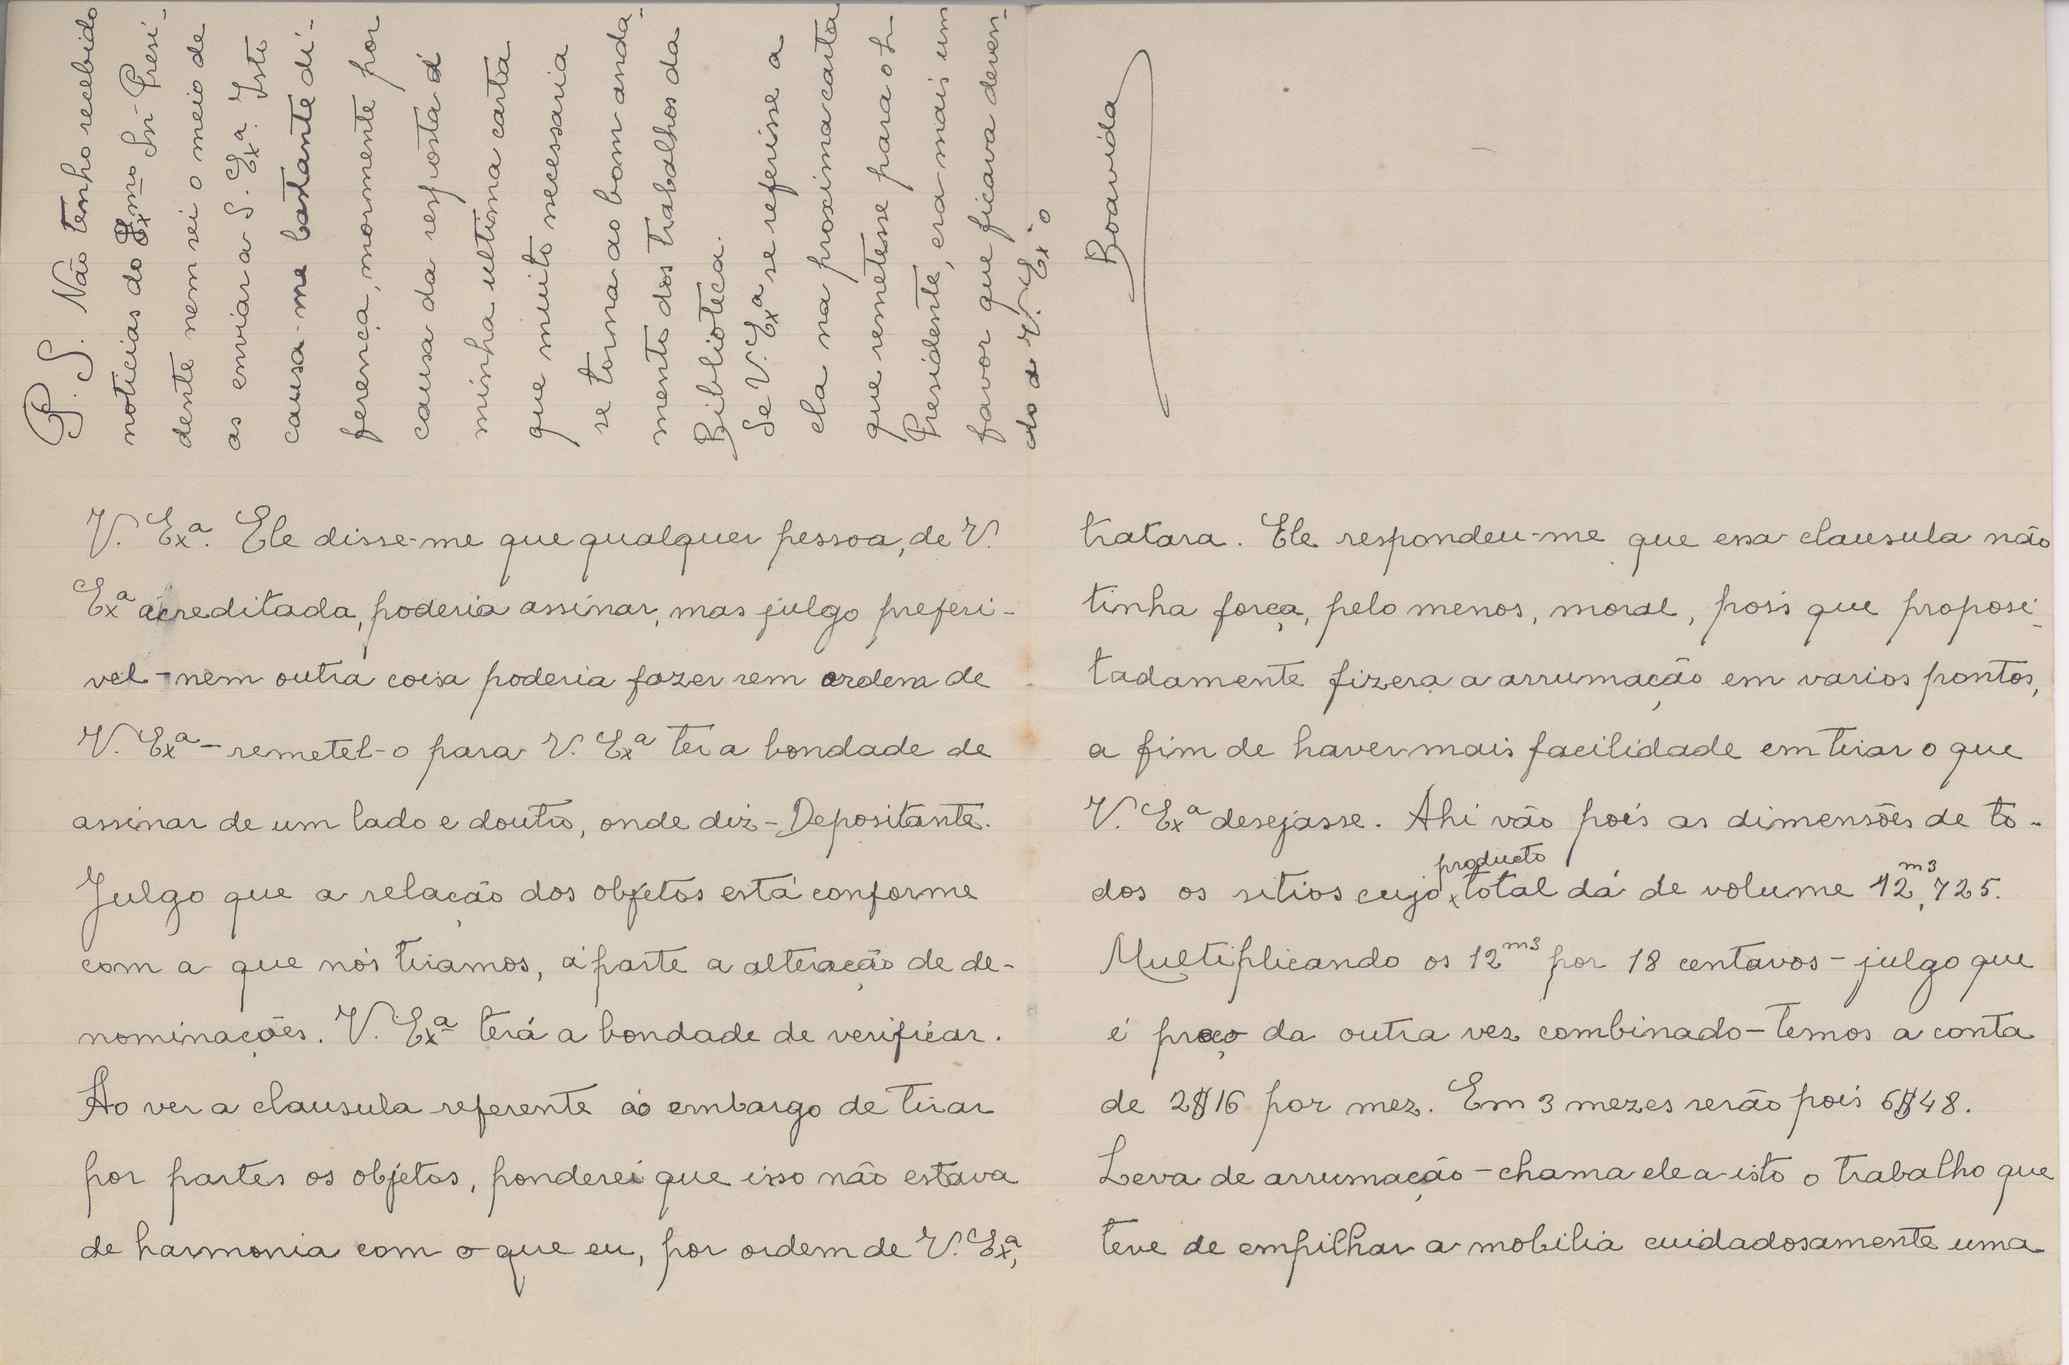 V. Exª. Ele disse-me que qualquer pessoa, de V.
Exª acreditada, poderia assinar, mas julgo preferi-
vel - nem outra coisa poderia fazer sem ordem de
V. Exª - remetel-o para V. Exª ter a bondade de
assinar de um lado e doutro, onde diz - Depositante.
Julgo que a relação dos objetos está conforme
com a que nós tiramos, áparte a alteração de de-
nominações. V. Exª terá a bondade de verificar.
Ao ver a clausula referente ao embargo de tirar
por partes os objetos, ponderei que isso não estava
de harmonia com o que eu, por ordem de V. Exª,
tratara. Ele respondeu-me que essa clausula não
tinha força, pelo menos, moral, pois que proposi-
tadamente fizera a arrumação em varios pontos,
a fim de haver mais facilidade em tirar o que
V. Exª desejasse. Ahi vão pois as dimensões de to-
dos os sitios cujo producto total dá de volume 12,m3 725.
Multiplicando os 12 m3 por 18 centavos - julgo que
é preço da outra vez combinado - temos a conta
de 2$16 por mez. Em 3 mezes serão pois 6$48.
Leva de arrumação - chama ele a isto o trabalho que
teve de empilhar a mobilia cuidadosamente uma
P. S. Não tenho recebido
noticias do Exmo Snr Presi-
dente nem sei o meio de
as enviar a S. Exª. Isto
causa-me bastante di-
ferença, mormente por
causa da resposta á
minha ultima carta
que muito necessaria
se torna ao bom anda-
mento dos trabalhos da
Biblioteca.
Se V. Exª se referisse a
ela na proxima carta
que remetesse para o Sr
Presidente, era mais um
favor que ficava deven-
do a V. Ex. o
Boavida